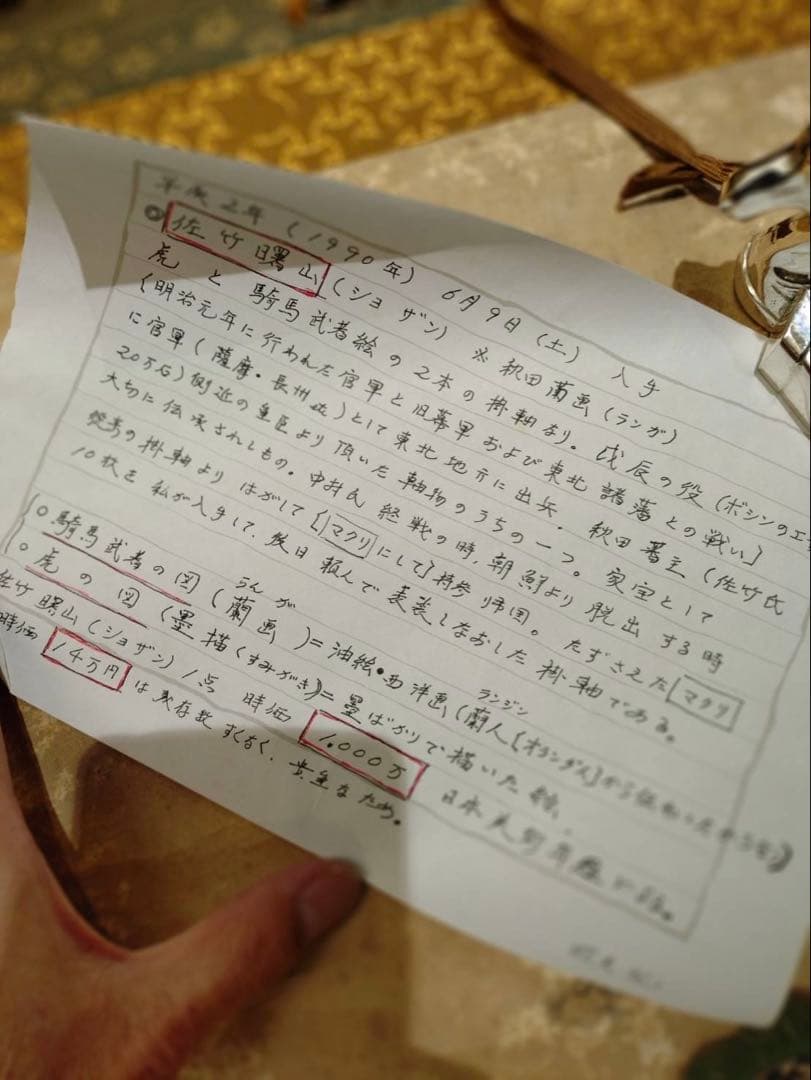 平成2年(1990年) 6月9日(土) 入手
佐竹曙山(ショザン) ※秋田蘭画(ランガ)
虎と騎馬武者絵の2本の掛軸なり。戊辰の役(ボシンのエキ
(明治元年に行われた官軍と旧幕軍および東北諸藩との戦い]
に官軍(薩摩・長州 )として東北地方に出兵。秋田藩主(佐竹氏
20万石)側近の重臣より頂いた軸物のうちの一つ。家宝として
大切に伝承されしもの。中井氏 終戦の時,朝鮮より脱出する時
の掛軸より はがして〔マクリにして〕持参帰国。たずさえたマクリ
10枚を 私が入手して、後日頼んで表装しなおした掛軸である。
○騎馬武者の図(蘭画(らんが))=油絵・西洋画(蘭人(ランジン)[オランダ人]から伝わった
○虎の図(墨描(すみがき))=墨ばかりで描いた絵、
佐竹曙山(ショザン)1点 時価 1,000万 日本美術年鑑による。
時価 14万円は 現存数すくなく、貴重なため。